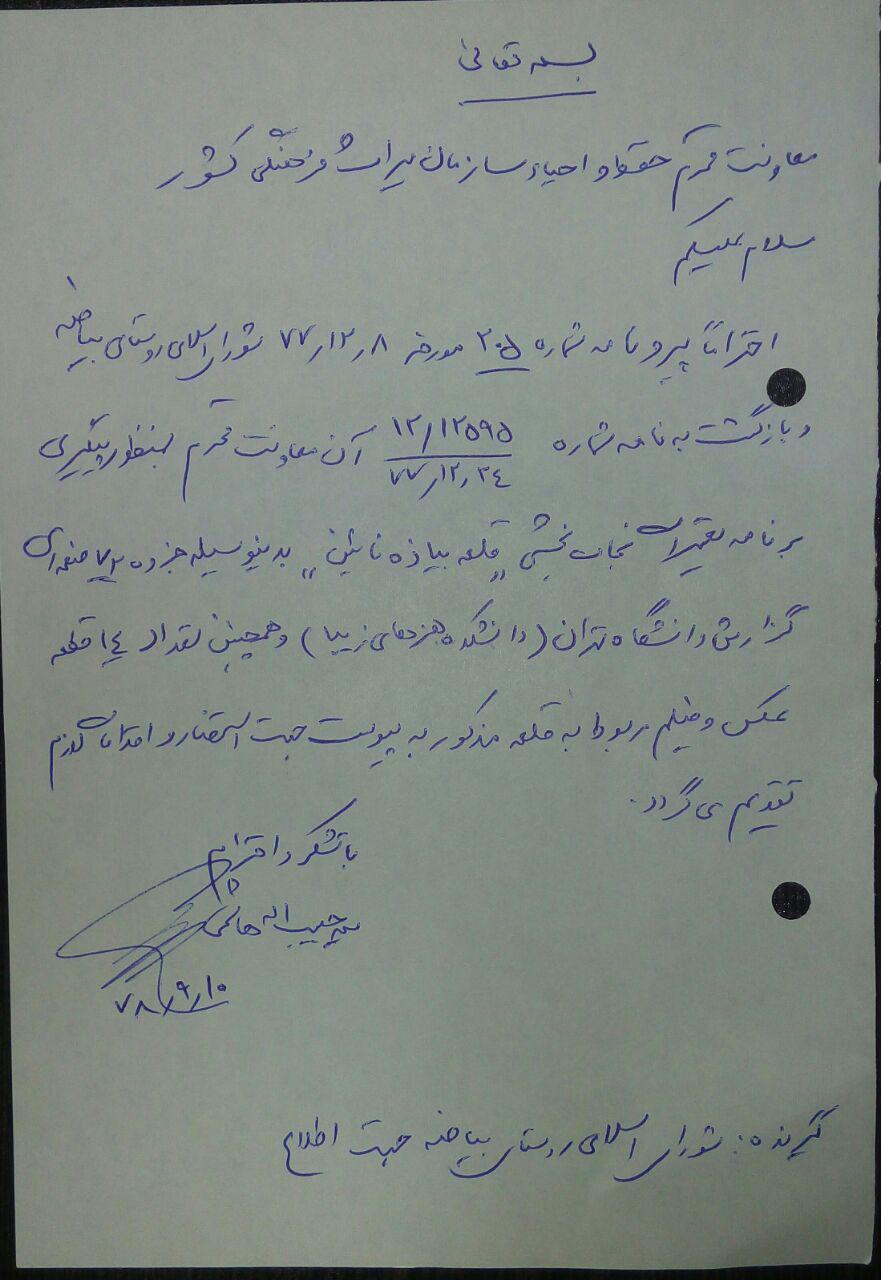 بسمه تعالی
معاونت محترم حفظ و احیاء سازمان میراث فرهنگی کشور
سلام علیکم
احتراماً پیرو نامه شماره ۲۰۵ مورخه ۷۷٫۱۲٫۸ شورای اسلامی روستای بیاضه
و بازگشت به نامه شماره ۱۲/۱۲۵۹۵ ۷۷٫۱۲٫۲۴ آن معاونت محترم بمنظور پیگیری
برنامه تعمیرات نجات بخشی "قلعه بیاذه نائین" بدینوسیله جزوه ۷۲ صفحه‌ای
گزارش دانشگاه تهران (دانشکده هنرهای زیبا) و همچنین تعداد ۱۴ قطعه
عکس و فیلم مربوط به قلعه مذکور به پیوست جهت استحضار و اقدامات لازم
تقدیم می گردد.
با تشکر و احترام
حبیب اله هاشمی
۷۸٫۹٫۱۰
گیرنده: شورای اسلامی روستای بیاضه جهت اطلاع